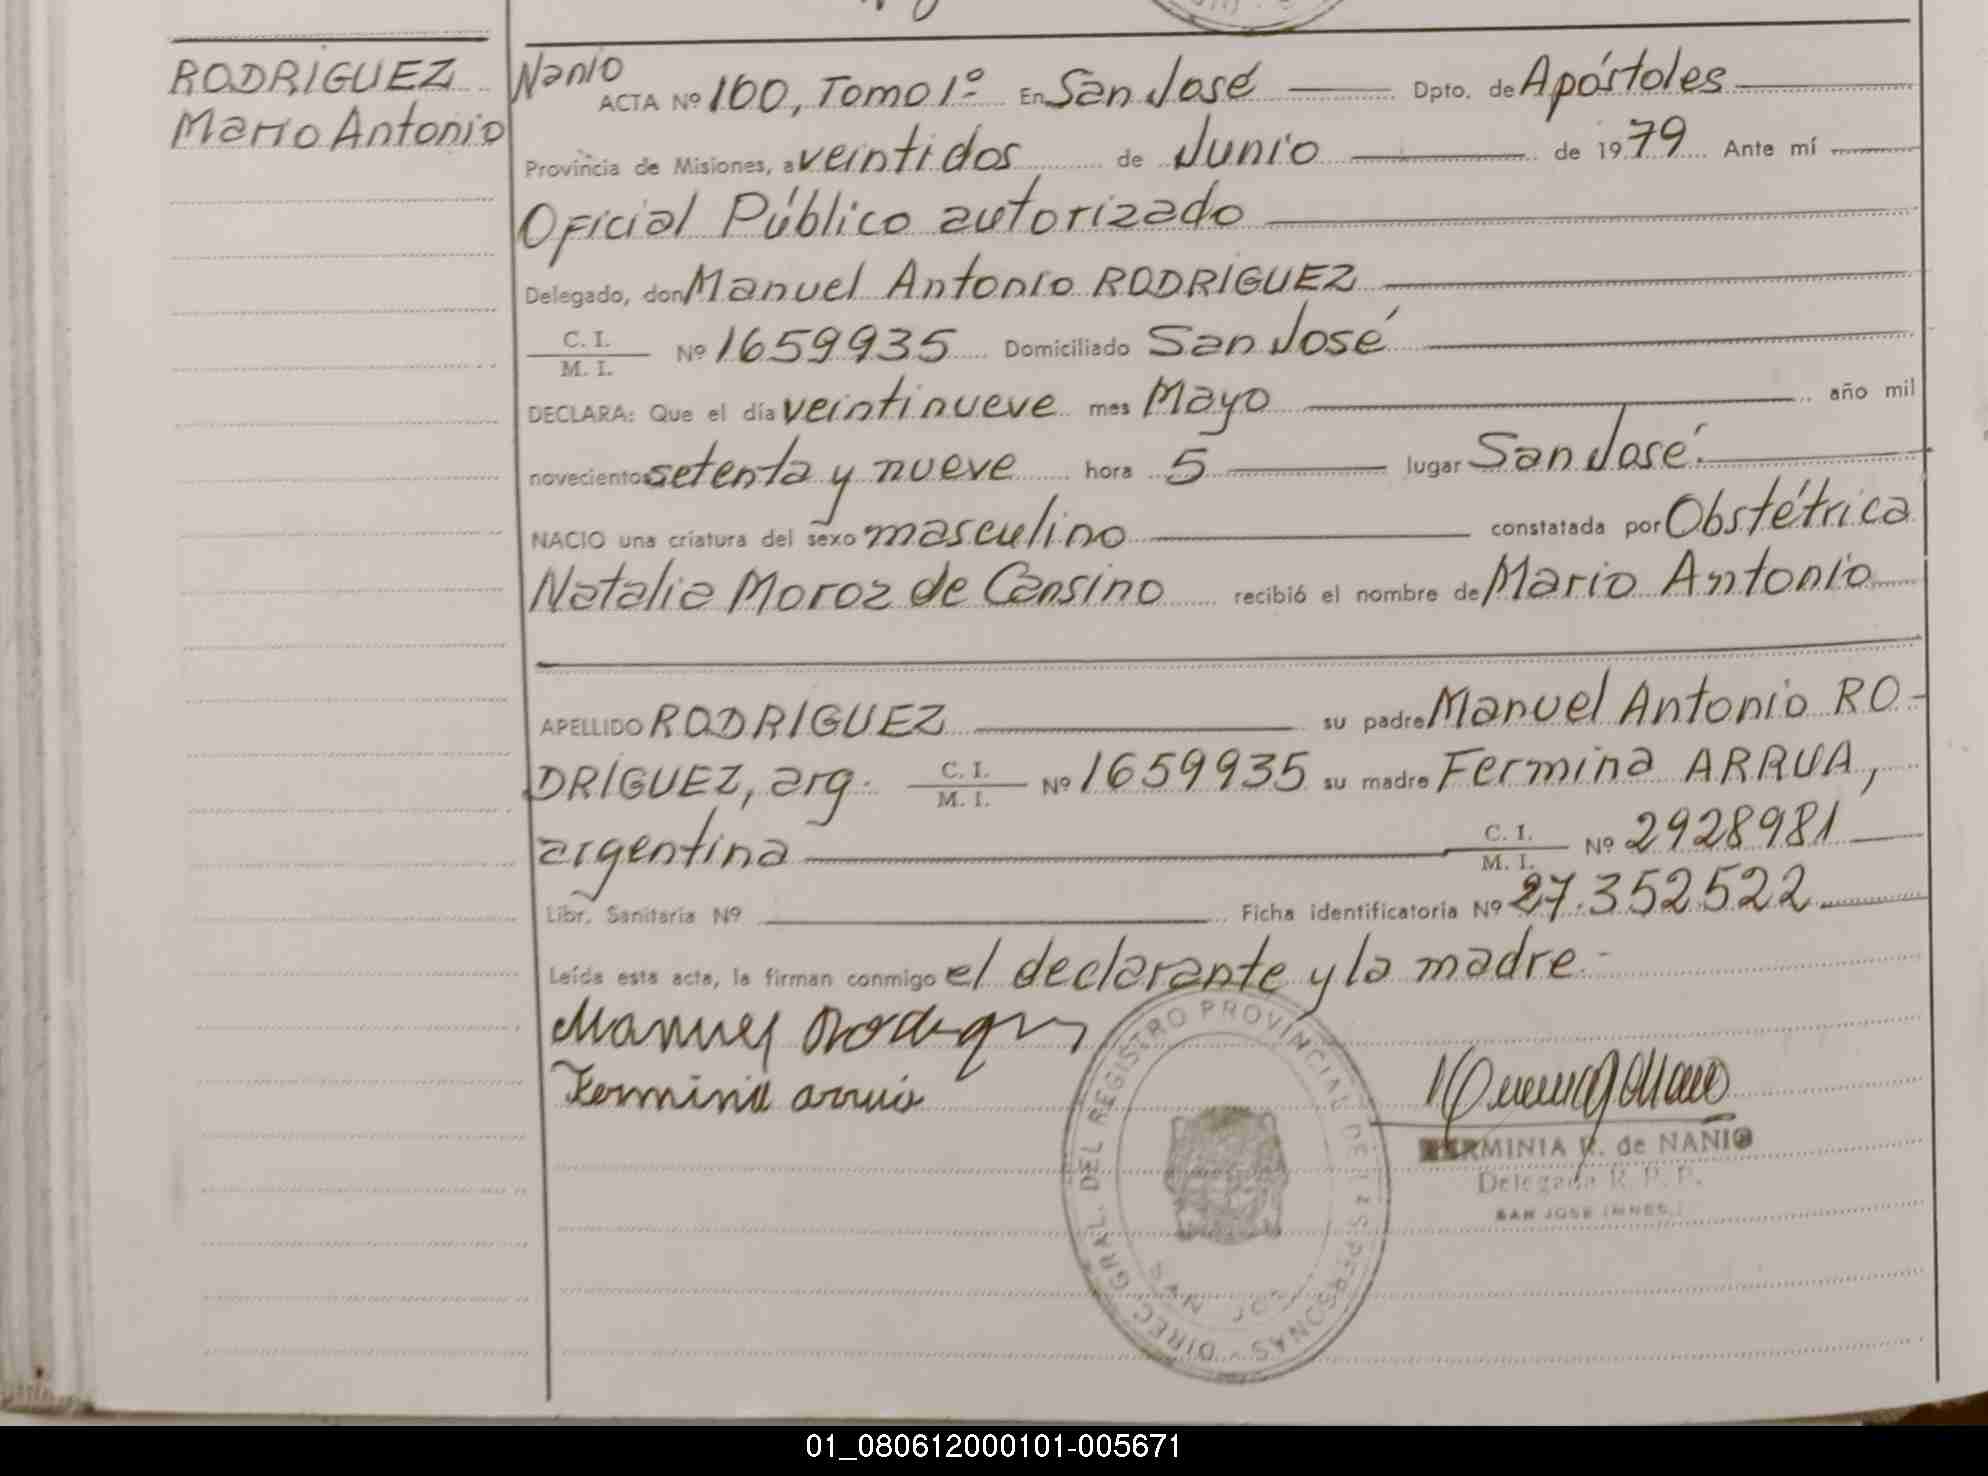 RODRIGUEZ
Mario Antonio
Nanio
ACTA Nº 100, Tomo 1º En San José Dpto. de Apóstoles
Provincia de Misiones, a veintidos de Junio de 1979 Ante mí
Oficial Público autorizado
Delegado, don Manuel Antonio RODRIGUEZ
C. I.
M. I. Nº 1659935 Domiciliado San José
DECLARA: Que el día veintinueve mes Mayo año mil
novecientos setenta y nueve hora 5 lugar San José.
NACIO una criatura del sexo masculino constatada por Obstétrica
Natalia Moroz de Cansino recibió el nombre de Mario Antonio
APELLIDO RODRIGUEZ su padre Manuel Antonio RO-
DRIGUEZ, arg. C. I. M. I. Nº 1659935 su madre Fermina ARRUA,
argentina C. I. M. I. Nº 2928981
Libr. Sanitaria Nº Ficha identificatoria Nº 27.352522
Leída esta acta, la firman conmigo el declarante y la madre.-
Manuel Rodriguez
Fermina arrua
HERMINIA R. de NAÑIO
Delegada R. P. P.
SAN JOSE (MNES.)
DIREC. GRAL. DEL REGISTRO PROVINCIAL DE LAS PERSONAS - SAN JOSE
01_080612000101-005671